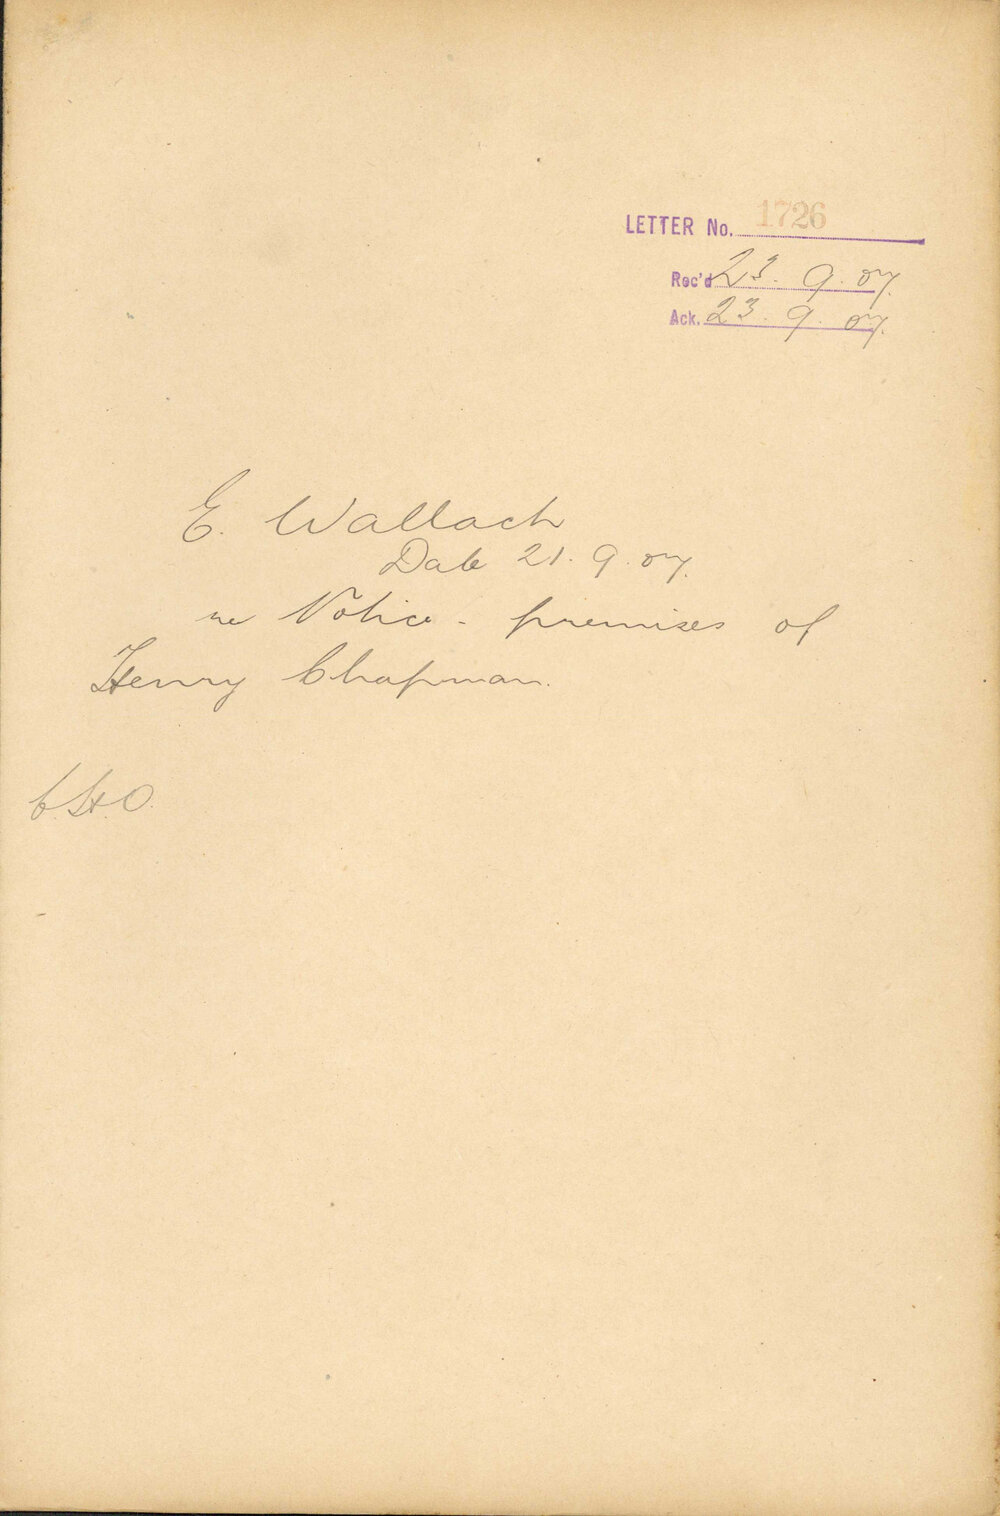 LETTER No. 1726
Rec'd 23. 9. 07.
Ack. 23. 9. 07.
E. Wallach
Date 21. 9. 07.
re Notice - premises of
Henry Chapman.
C.H.O.